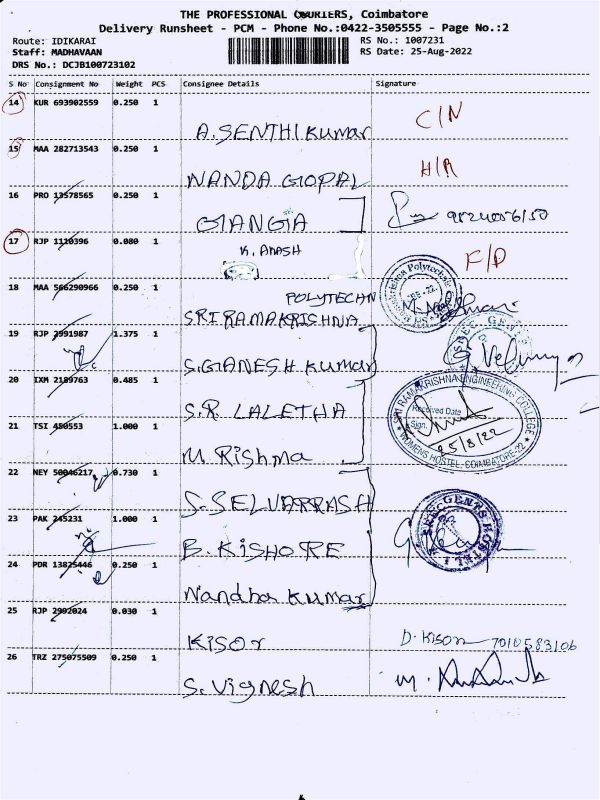 THE PROFESSIONAL COURIERS, Coimbatore
Delivery Runsheet - PCM - Phone No.:0422-3505555 - Page No.:2
Route: IDIKARAI
RS No.: 1007231
Staff: MADHAVAAN
RS Date: 25-Aug-2022
DRS No.: DCJB100723102
S No Consignment No Weight PCS Consignee Details Signature
14 KUR 693902559 0.250 1
A. SENTHI Kumar C/N
15 MAA 282713543 0.250 1
NANDA GOPAL H/R
16 PRO 13578565 0.250 1
GIANGIA
17 RJP 1110396 0.080 1
K. ARASH F/D
18 MAA 566290966 0.250 1
POLYTECHN
SRI RAMAKRISHNA
19 RJP 2991987 1.375 1
S. GANESH Kumar Velmurugan
20 IXM 2189763 0.485 1
S.R. LALETHA
SRI RAMAKRISHNA ENGINEERING COLLEGE
Received Date
Sign.
25/8/22
WOMENS HOSTEL, COIMBATORE-22
21 TSI 450553 1.000 1
M. Rishma
22 NEY 50046217 0.730 1
S. SELVARRASH
23 PAK 245231 1.000 1
B. KISHORE
24 PDR 13825446 0.250 1
Nandha Kumar
25 RJP 2992024 0.030 1
KISOR D. Kison 7010583106
26 TRZ 275075509 0.250 1
S. Vignesh